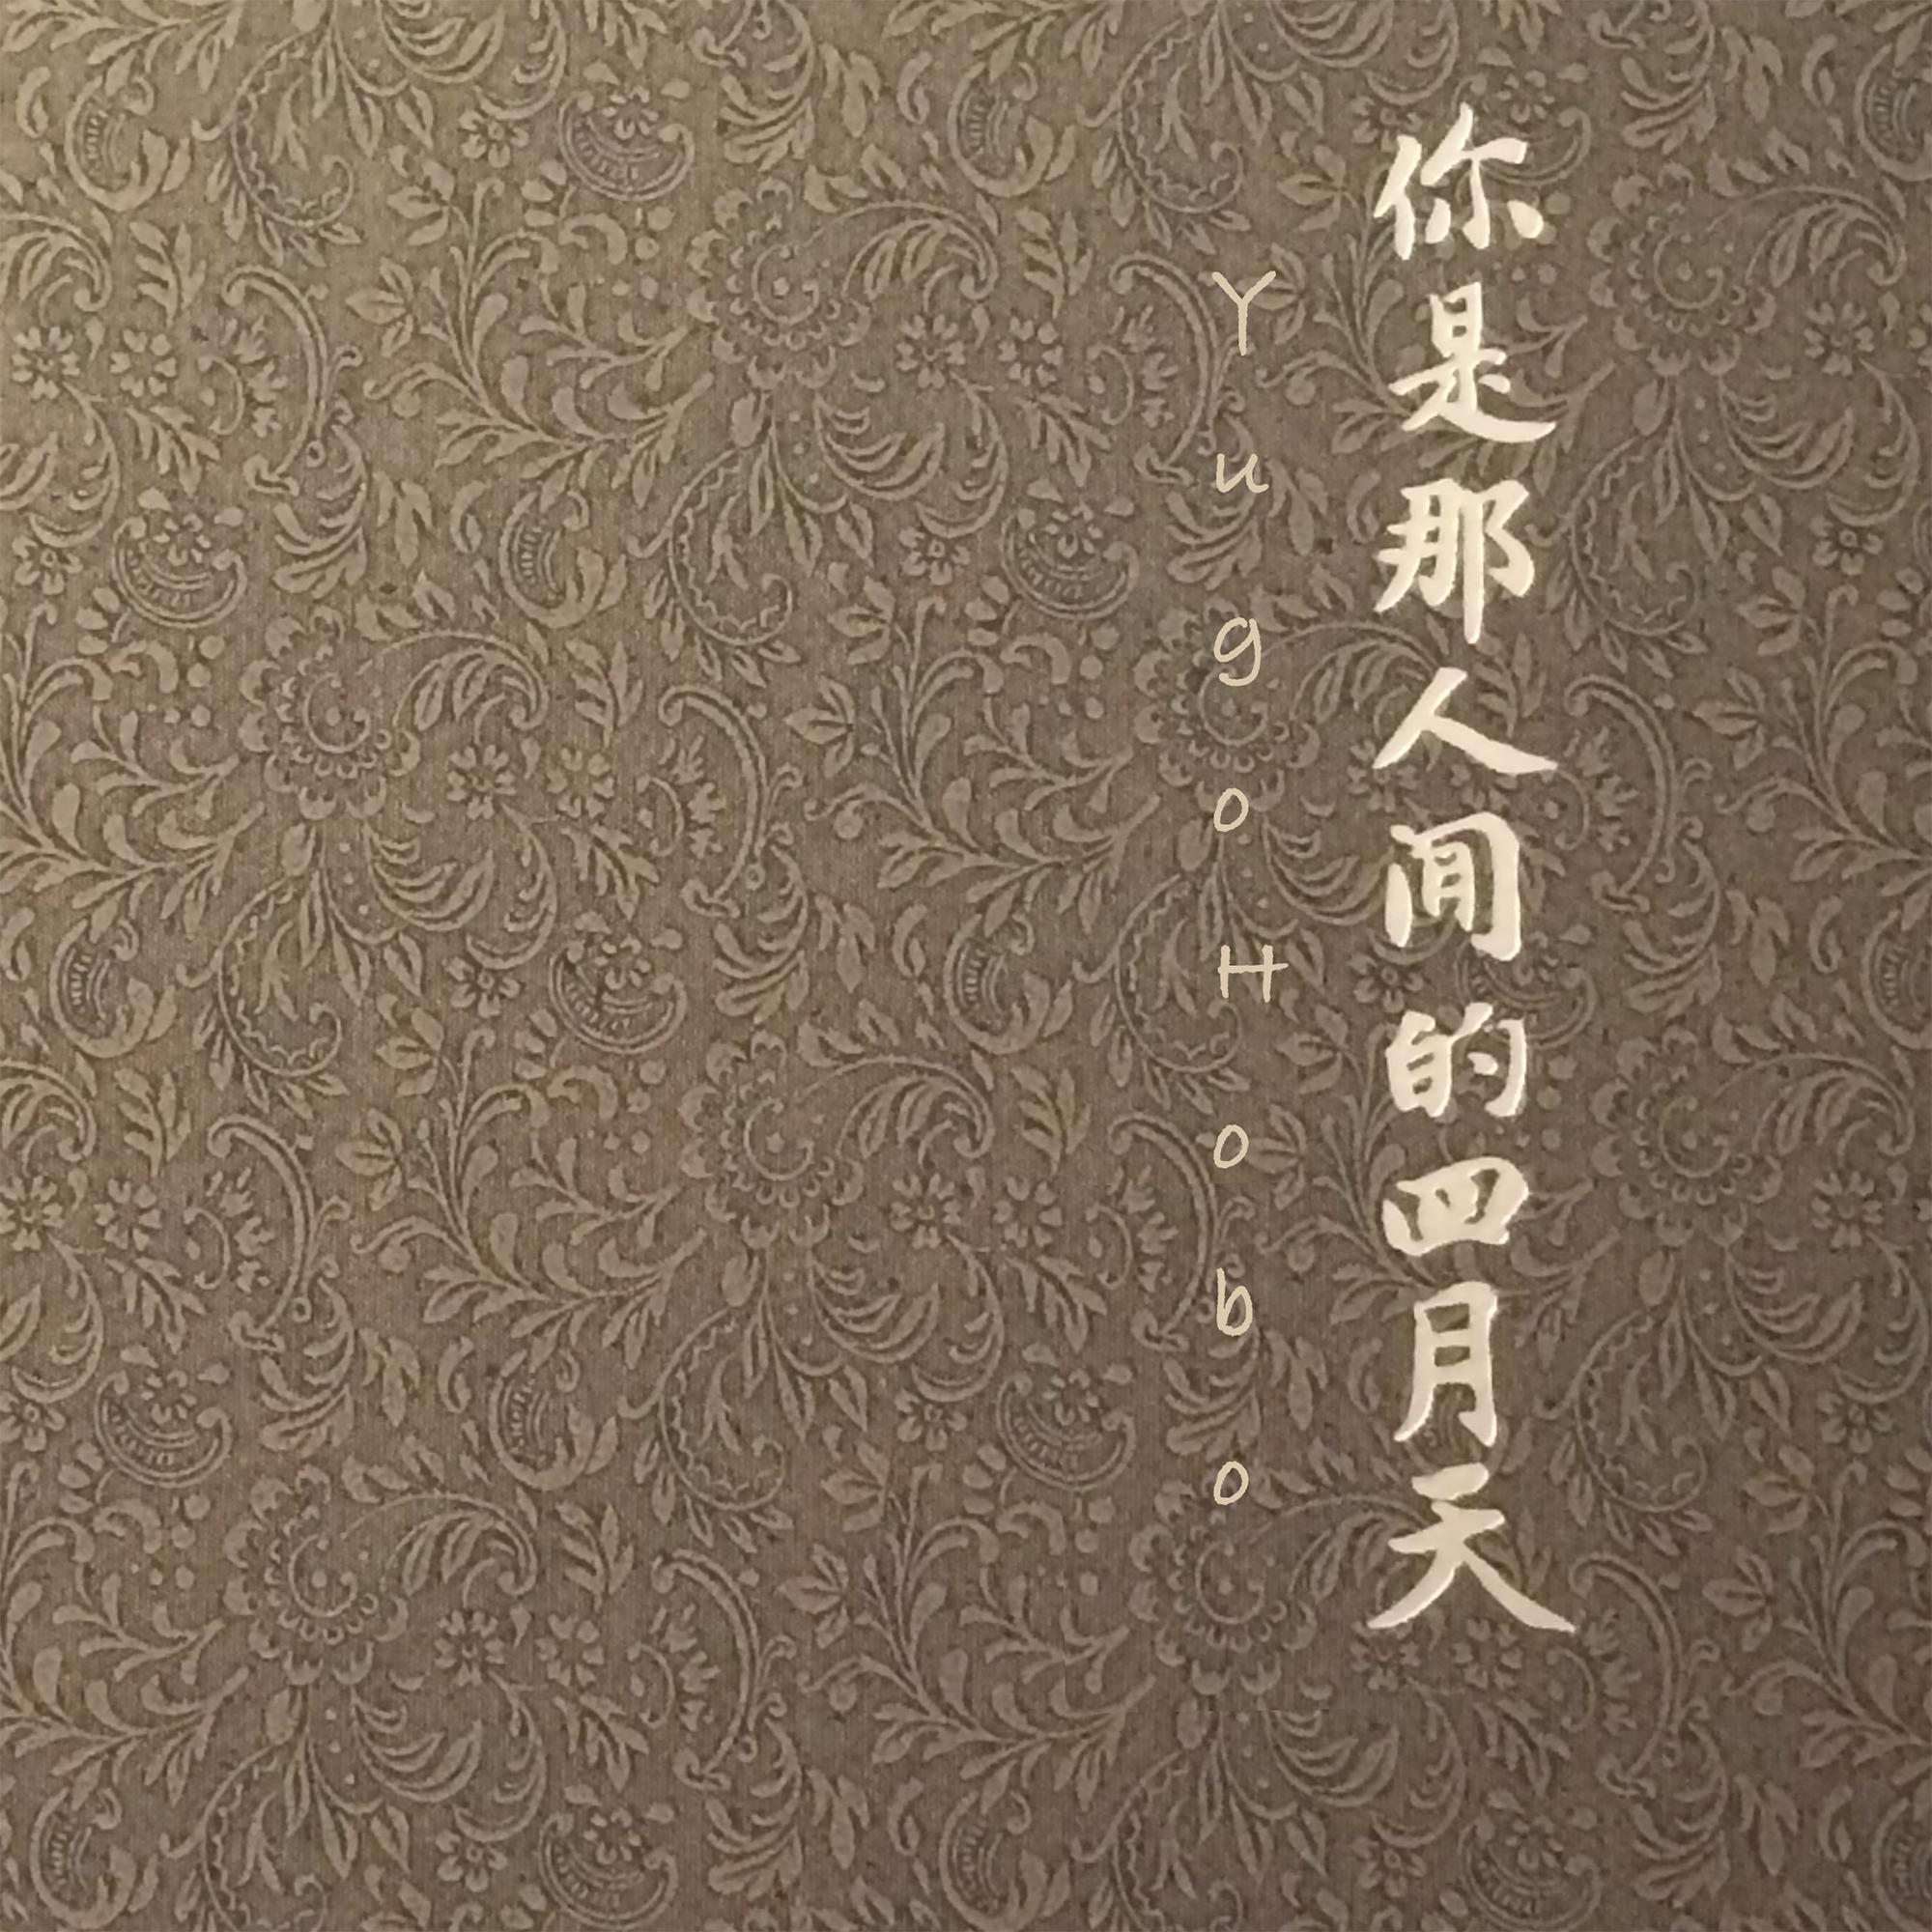 你是那人间的四月天
YugoHobo